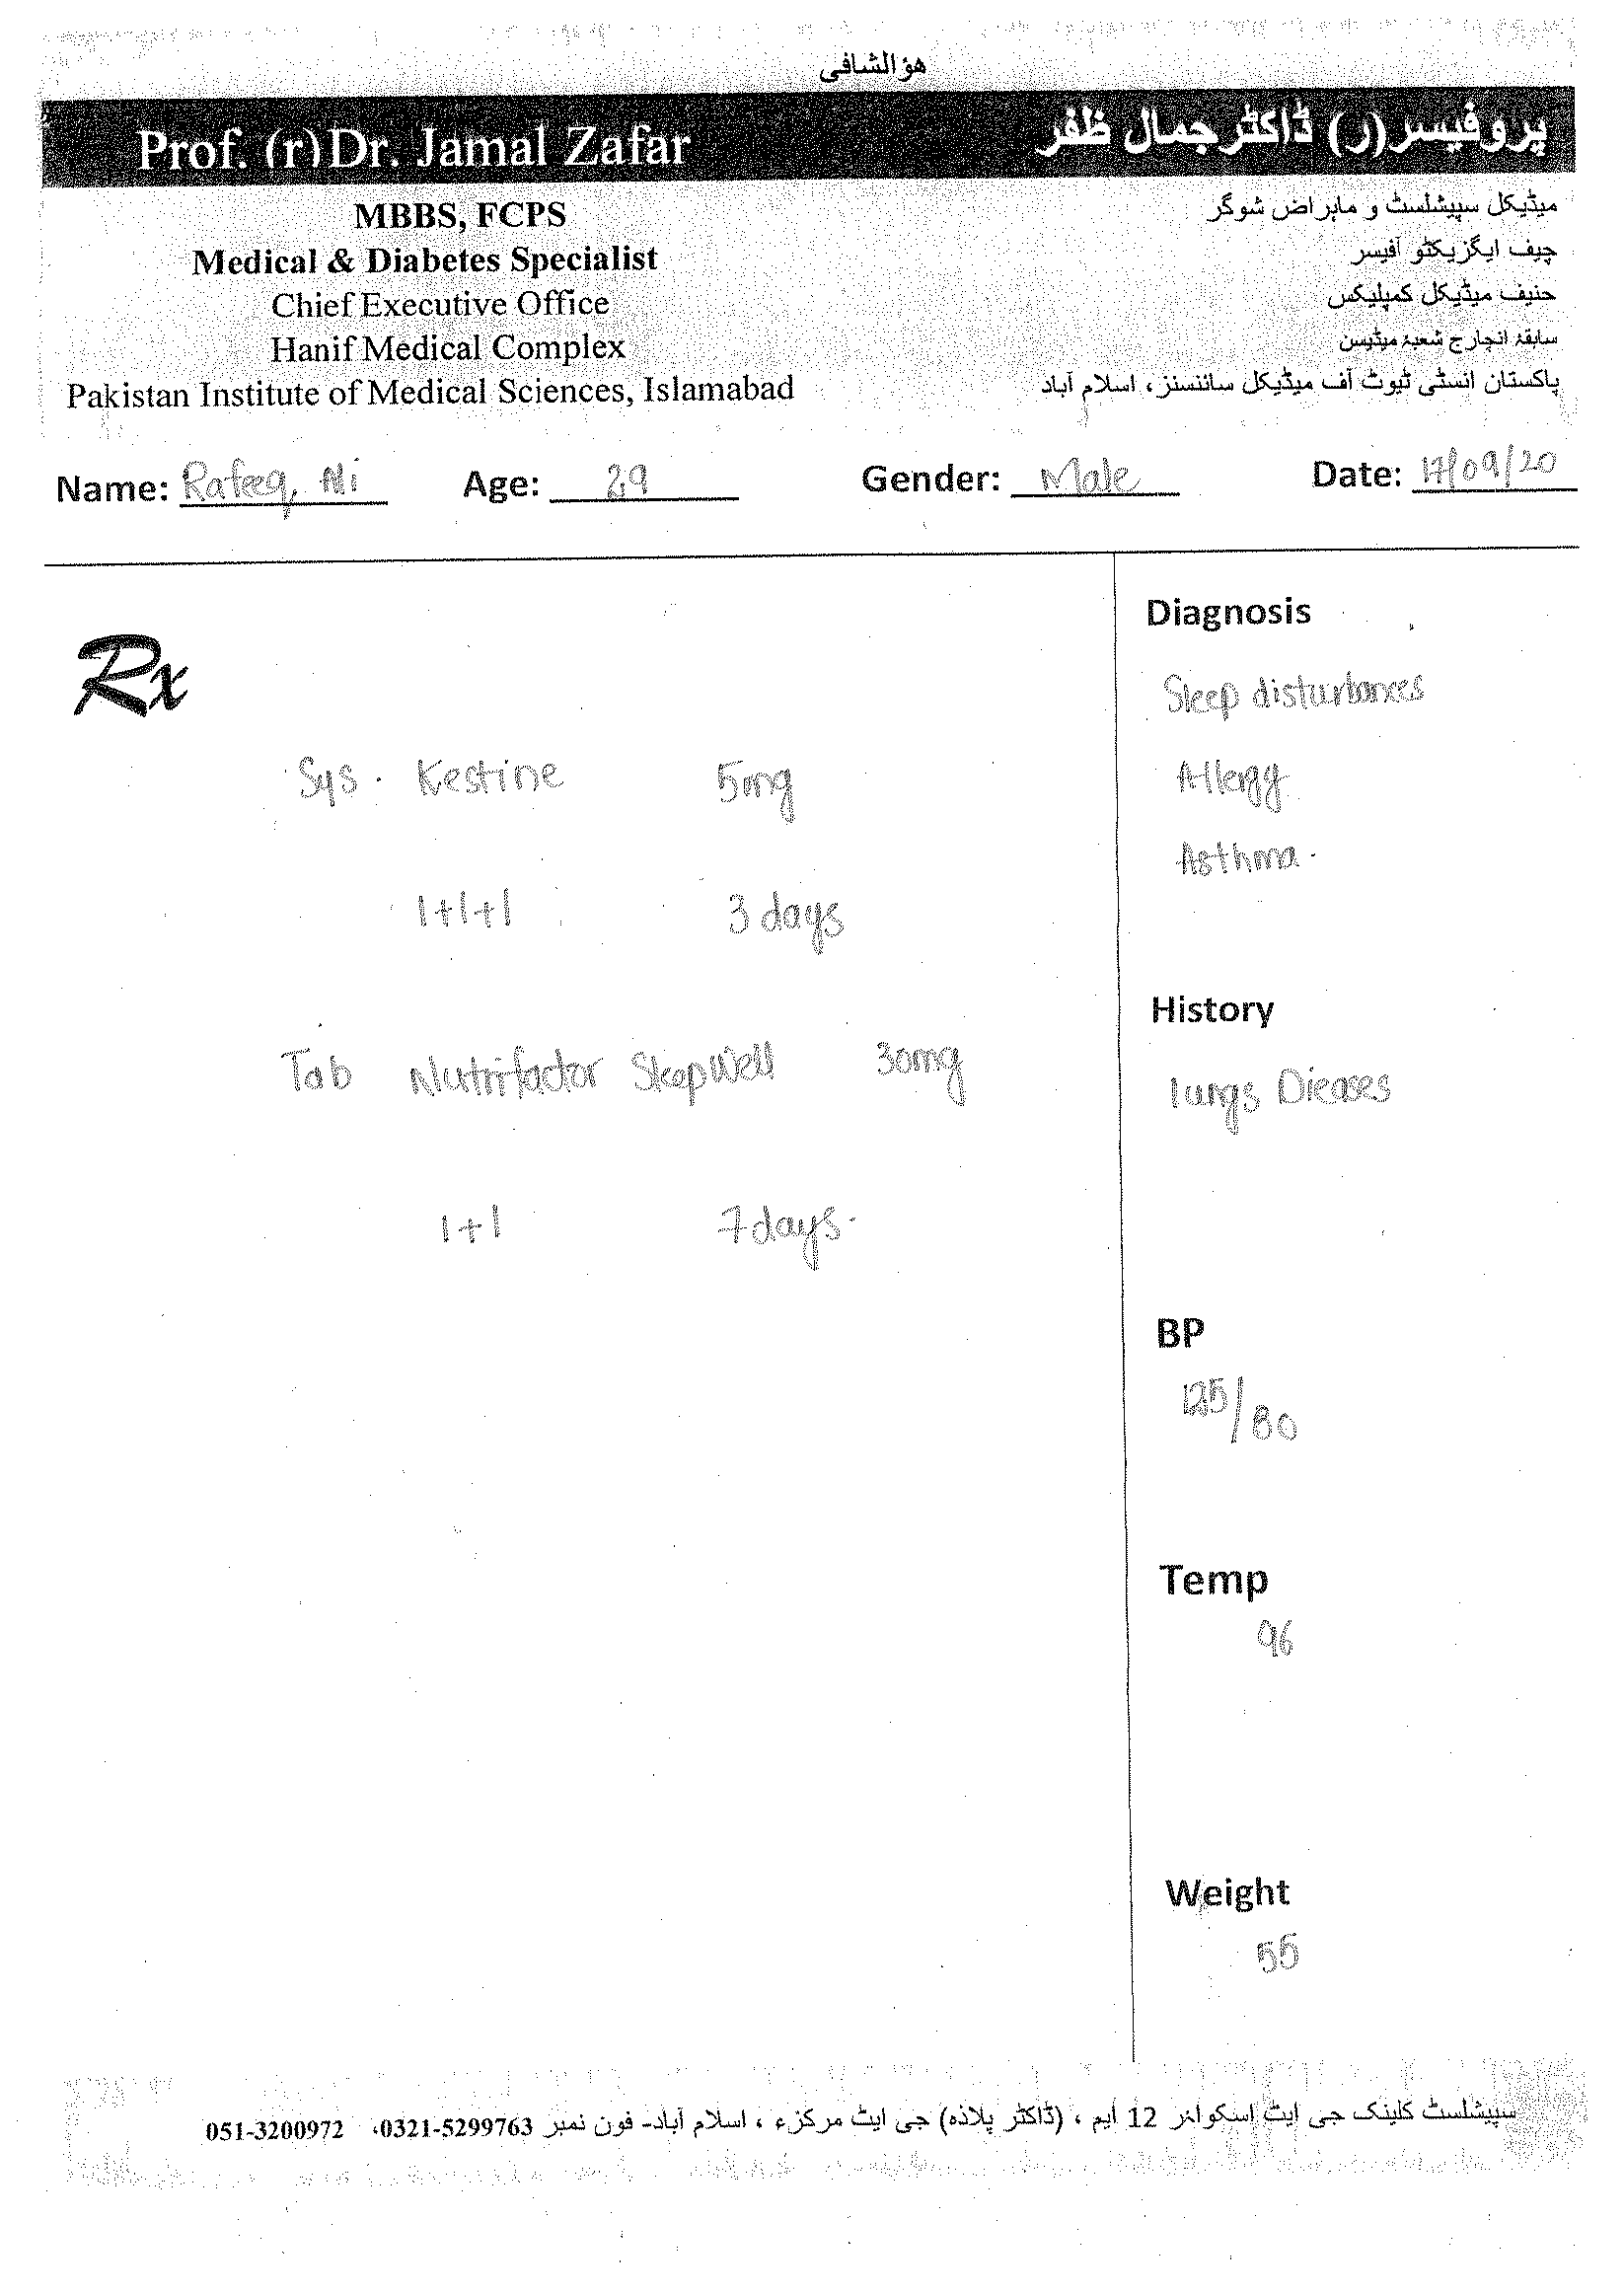 هؤالشافی
Prof. (r)Dr. Jamal Zafar
پروفیسر(ر) ڈاکٹرجمال ظفر
MBBS, FCPS
Medical & Diabetes Specialist
Chief Executive Office
Hanif Medical Complex
Pakistan Institute of Medical Sciences, Islamabad
میڈیکل سپیشلسٹ و ماہراض شوگر
چیف ایگزیکٹو آفیسر
حنیف میڈیکل کمپلیکس
سابقہ انچارج شعبہ میڈیسن
پاکستان انسٹی ٹیوٹ آف میڈیکل سائنسز، اسلام آباد
Name: Rafeeq Ali Age: 29 Gender: Male Date: 17/09/20
Rx
Sys. Kestine 5mg
1+1+1 3 days
Tab Nutrifactor SleepWell 30mg
1+1 7days.
Diagnosis
Sleep disturbances
Allergy
Asthma.
History
lungs Dieases
BP
125/80
Temp
96
Weight
55
سپیشلسٹ کلینک جی ایٹ اسکوائر 12 ایم ، (ڈاکٹر پلاذہ) جی ایٹ مرکزء ، اسلام آباد- فون نمبر 0321-5299763، 051-3200972